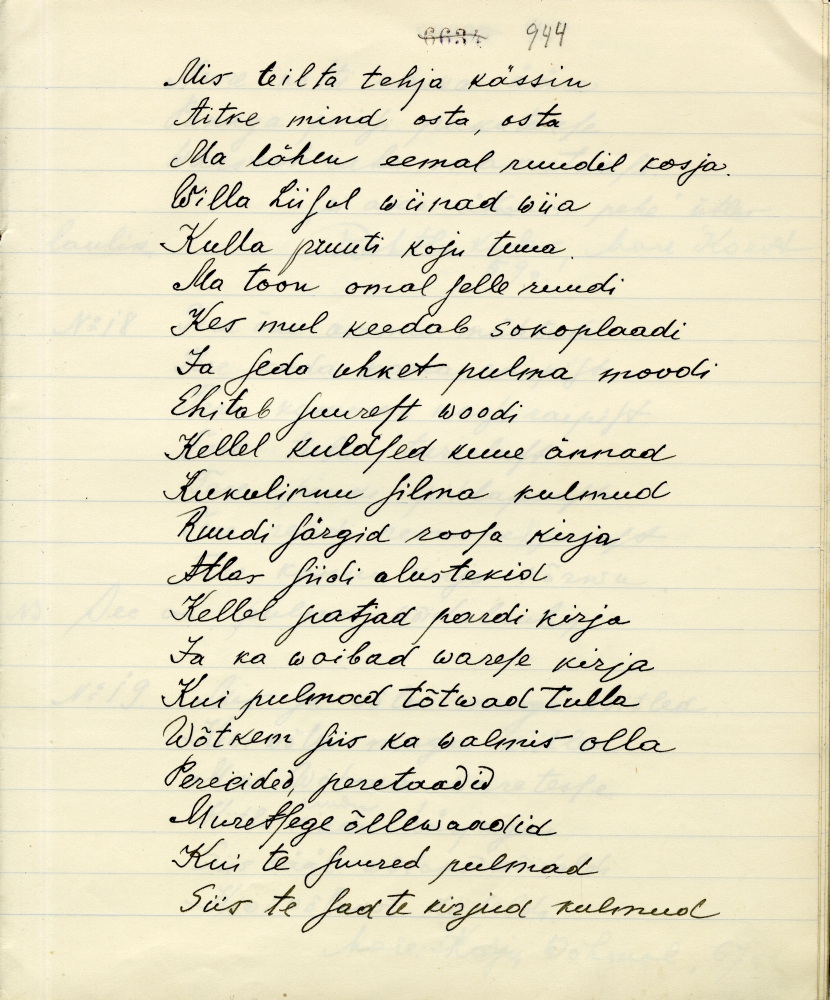 6634 944
Mis teilta tehja kässin
Aitke mind osta, osta
Ma lähen eemal ruudil kosja.
Willa Liiſul wiinad wiia
Kulla pruuti koju tuua.
Ma toon omal ſelle ruudi
Kes mul keedab sokoplaadi
Ja ſeda uhket pulma moodi
Ehitab ſuureſt woodi
Kellel kuldſed kuue ännad
Kukulinnu ſilma kulmud
Ruudi ſärgid rooſa kirja
Atlas ſiidi alustekid
Kellel patjad pardi kirja
Ja ka waibad wareſe kirja
Kui pulmad tõtwad tulla
Wõtkem ſiis ka walmis olla
Pereeided, peretaadid
Muretſege õllewaadid
Kui te ſuured pulmad
Siis te ſadte kirjud kulmud